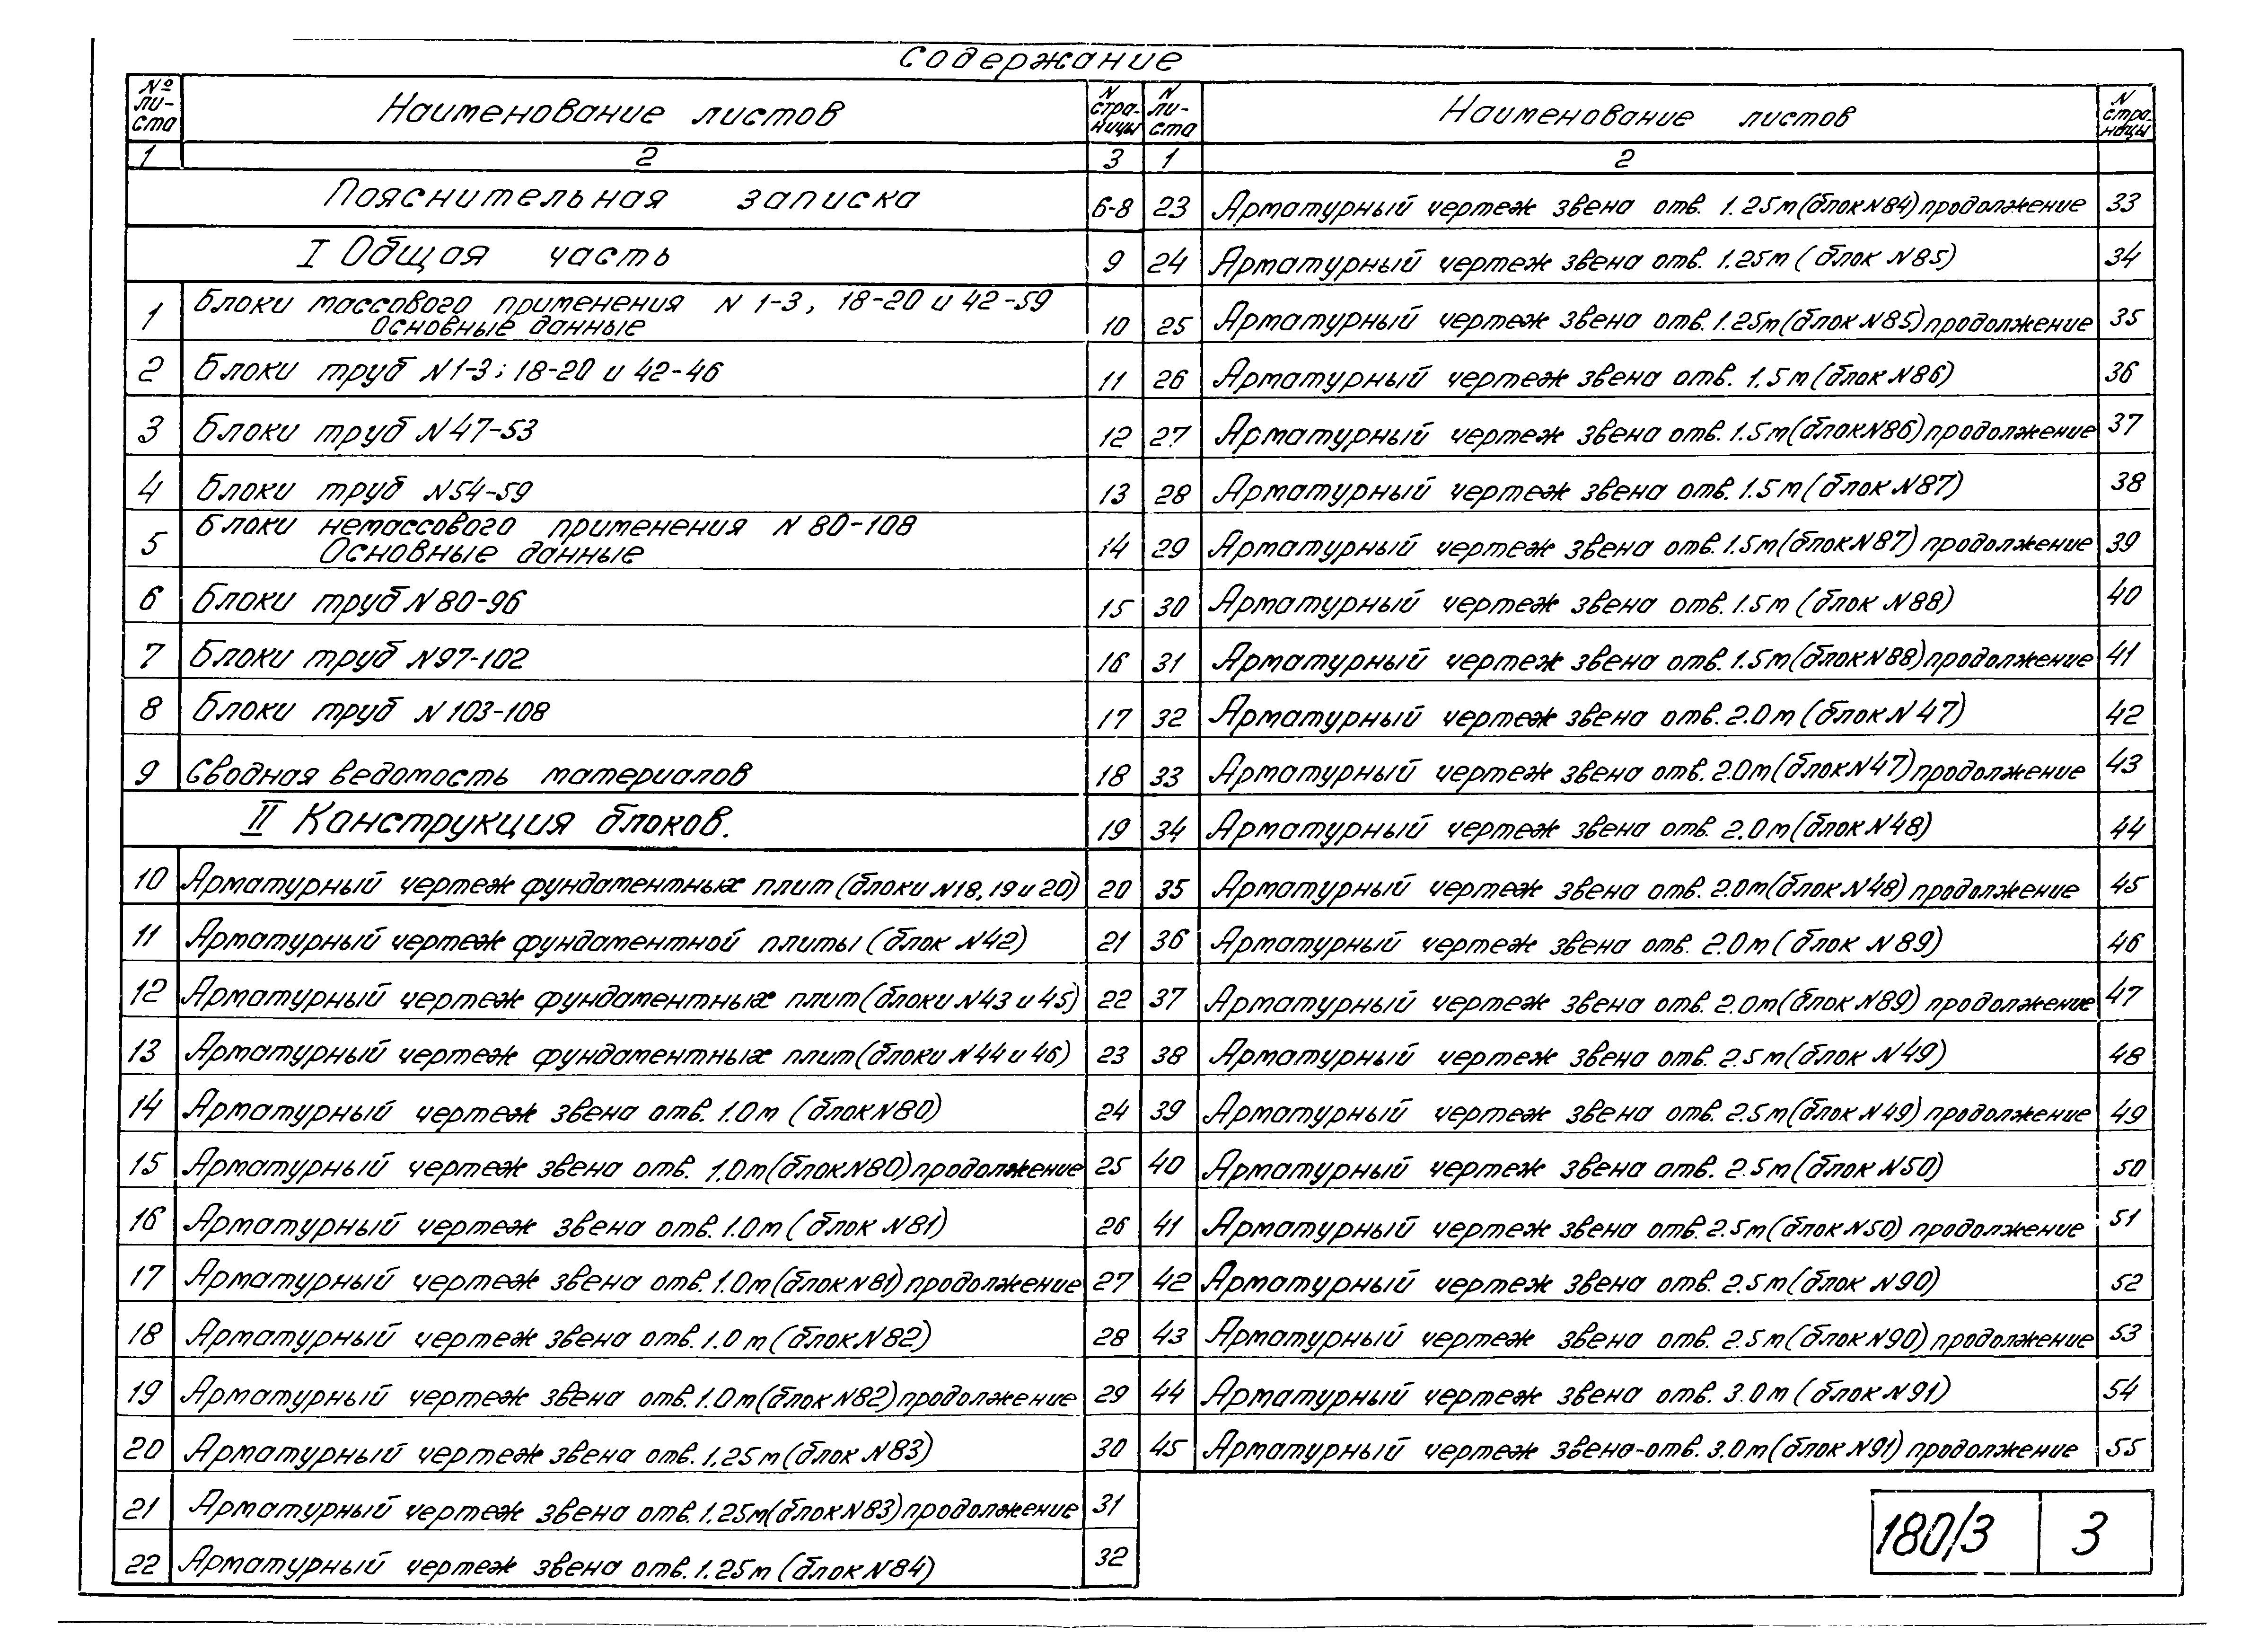 Содержание
№ ли-ста | Наименование листов | N стра-ницы
1 | 2 | 3
Пояснительная записка | 6-8
I Общая часть | 9
1 | Блоки массового применения N 1-3, 18-20 и 42-59
основные данные | 10
2 | Блоки труб N1-3; 18-20 и 42-46 | 11
3 | Блоки труб N47-53 | 12
4 | Блоки труб N54-59 | 13
5 | Блоки немассового применения N 80-108
Основные данные | 14
6 | Блоки труб N80-96 | 15
7 | Блоки труб N97-102 | 16
8 | Блоки труб N103-108 | 17
9 | Сводная ведомость материалов | 18
II Конструкция блоков. | 19
10 | Арматурный чертеж фундаментных плит (блоки N18, 19 и 20) | 20
11 | Арматурный чертеж фундаментной плиты (блок N42) | 21
12 | Арматурный чертеж фундаментных плит (блоки N43 и 45) | 22
13 | Арматурный чертеж фундаментных плит (блоки N44 и 46) | 23
14 | Арматурный чертеж звена отв. 1.0м (блок N80) | 24
15 | Арматурный чертеж звена отв. 1.0м (блок N80) продолжение | 25
16 | Арматурный чертеж звена отв. 1.0м (блок N81) | 26
17 | Арматурный чертеж звена отв. 1.0м (блок N81) продолжение | 27
18 | Арматурный чертеж звена отв. 1.0м (блок N82) | 28
19 | Арматурный чертеж звена отв. 1.0м (блок N82) продолжение | 29
20 | Арматурный чертеж звена отв. 1.25м (блок N83) | 30
21 | Арматурный чертеж звена отв. 1.25м (блок N83) продолжение | 31
22 | Арматурный чертеж звена отв. 1.25м (блок N84) | 32
N ли-ста | Наименование листов | N стра-ницы
1 | 2
23 | Арматурный чертеж звена отв. 1.25м (блок N84) продолжение | 33
24 | Арматурный чертеж звена отв. 1.25м (блок N85) | 34
25 | Арматурный чертеж звена отв. 1.25м (блок N85) продолжение | 35
26 | Арматурный чертеж звена отв. 1.5м (блок N86) | 36
27 | Арматурный чертеж звена отв. 1.5м (блок N86) продолжение | 37
28 | Арматурный чертеж звена отв. 1.5м (блок N87) | 38
29 | Арматурный чертеж звена отв. 1.5м (блок N87) продолжение | 39
30 | Арматурный чертеж звена отв. 1.5м (блок N88) | 40
31 | Арматурный чертеж звена отв. 1.5м (блок N88) продолжение | 41
32 | Арматурный чертеж звена отв. 2.0м (блок N47) | 42
33 | Арматурный чертеж звена отв. 2.0м (блок N47) продолжение | 43
34 | Арматурный чертеж звена отв. 2.0м (блок N48) | 44
35 | Арматурный чертеж звена отв. 2.0м (блок N48) продолжение | 45
36 | Арматурный чертеж звена отв. 2.0м (блок N89) | 46
37 | Арматурный чертеж звена отв. 2.0м (блок N89) продолжение | 47
38 | Арматурный чертеж звена отв. 2.5м (блок N49) | 48
39 | Арматурный чертеж звена отв. 2.5м (блок N49) продолжение | 49
40 | Арматурный чертеж звена отв. 2.5м (блок N50) | 50
41 | Арматурный чертеж звена отв. 2.5м (блок N50) продолжение | 51
42 | Арматурный чертеж звена отв. 2.5м (блок N90) | 52
43 | Арматурный чертеж звена отв. 2.5м (блок N90) продолжение | 53
44 | Арматурный чертеж звена отв. 3.0м (блок N91) | 54
45 | Арматурный чертеж звена-отв. 3.0м (блок N91) продолжение | 55
180/3 | 3